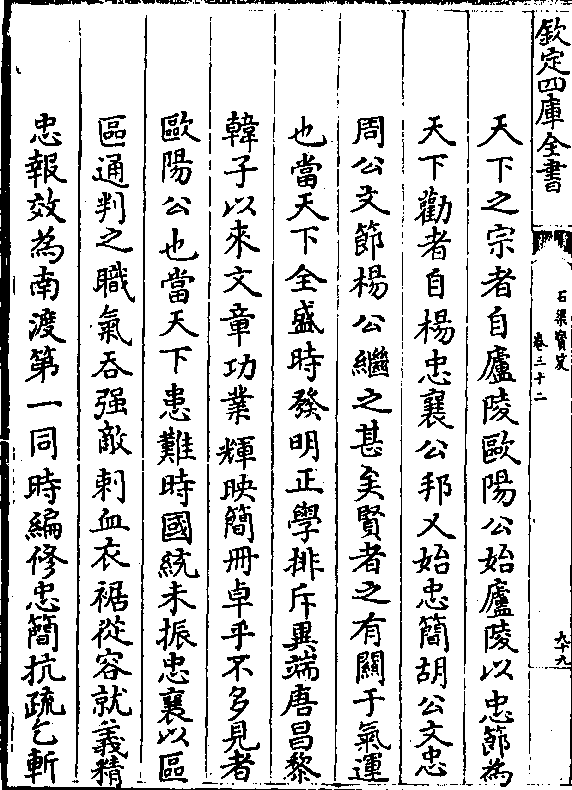 欽定四庫全書
石渠寶笈
卷三十二
九十九
天下之宗者自廬陵歐陽公始廬陵以忠節為
天下勸者自楊忠襄公邦乂始忠簡胡公文忠
周公文節楊公繼之甚矣賢者之有關于氣運
也當天下全盛時發明正學排斥異端唐昌黎
韓子以來文章功業輝映簡冊卓乎不多見者
歐陽公也當天下患難時國統未振忠襄以區
區通判之職氣吞强敵刺血衣裾從容就義精
忠報效為南渡第一同時編修忠簡抗疏乞斬